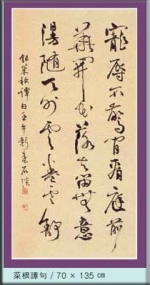 寵辱不驚閒看庭前
花開花落去留無意
漫隨天外雲卷雲舒
錄菜根譚句
菜根譚句 / 70 × 135 cm